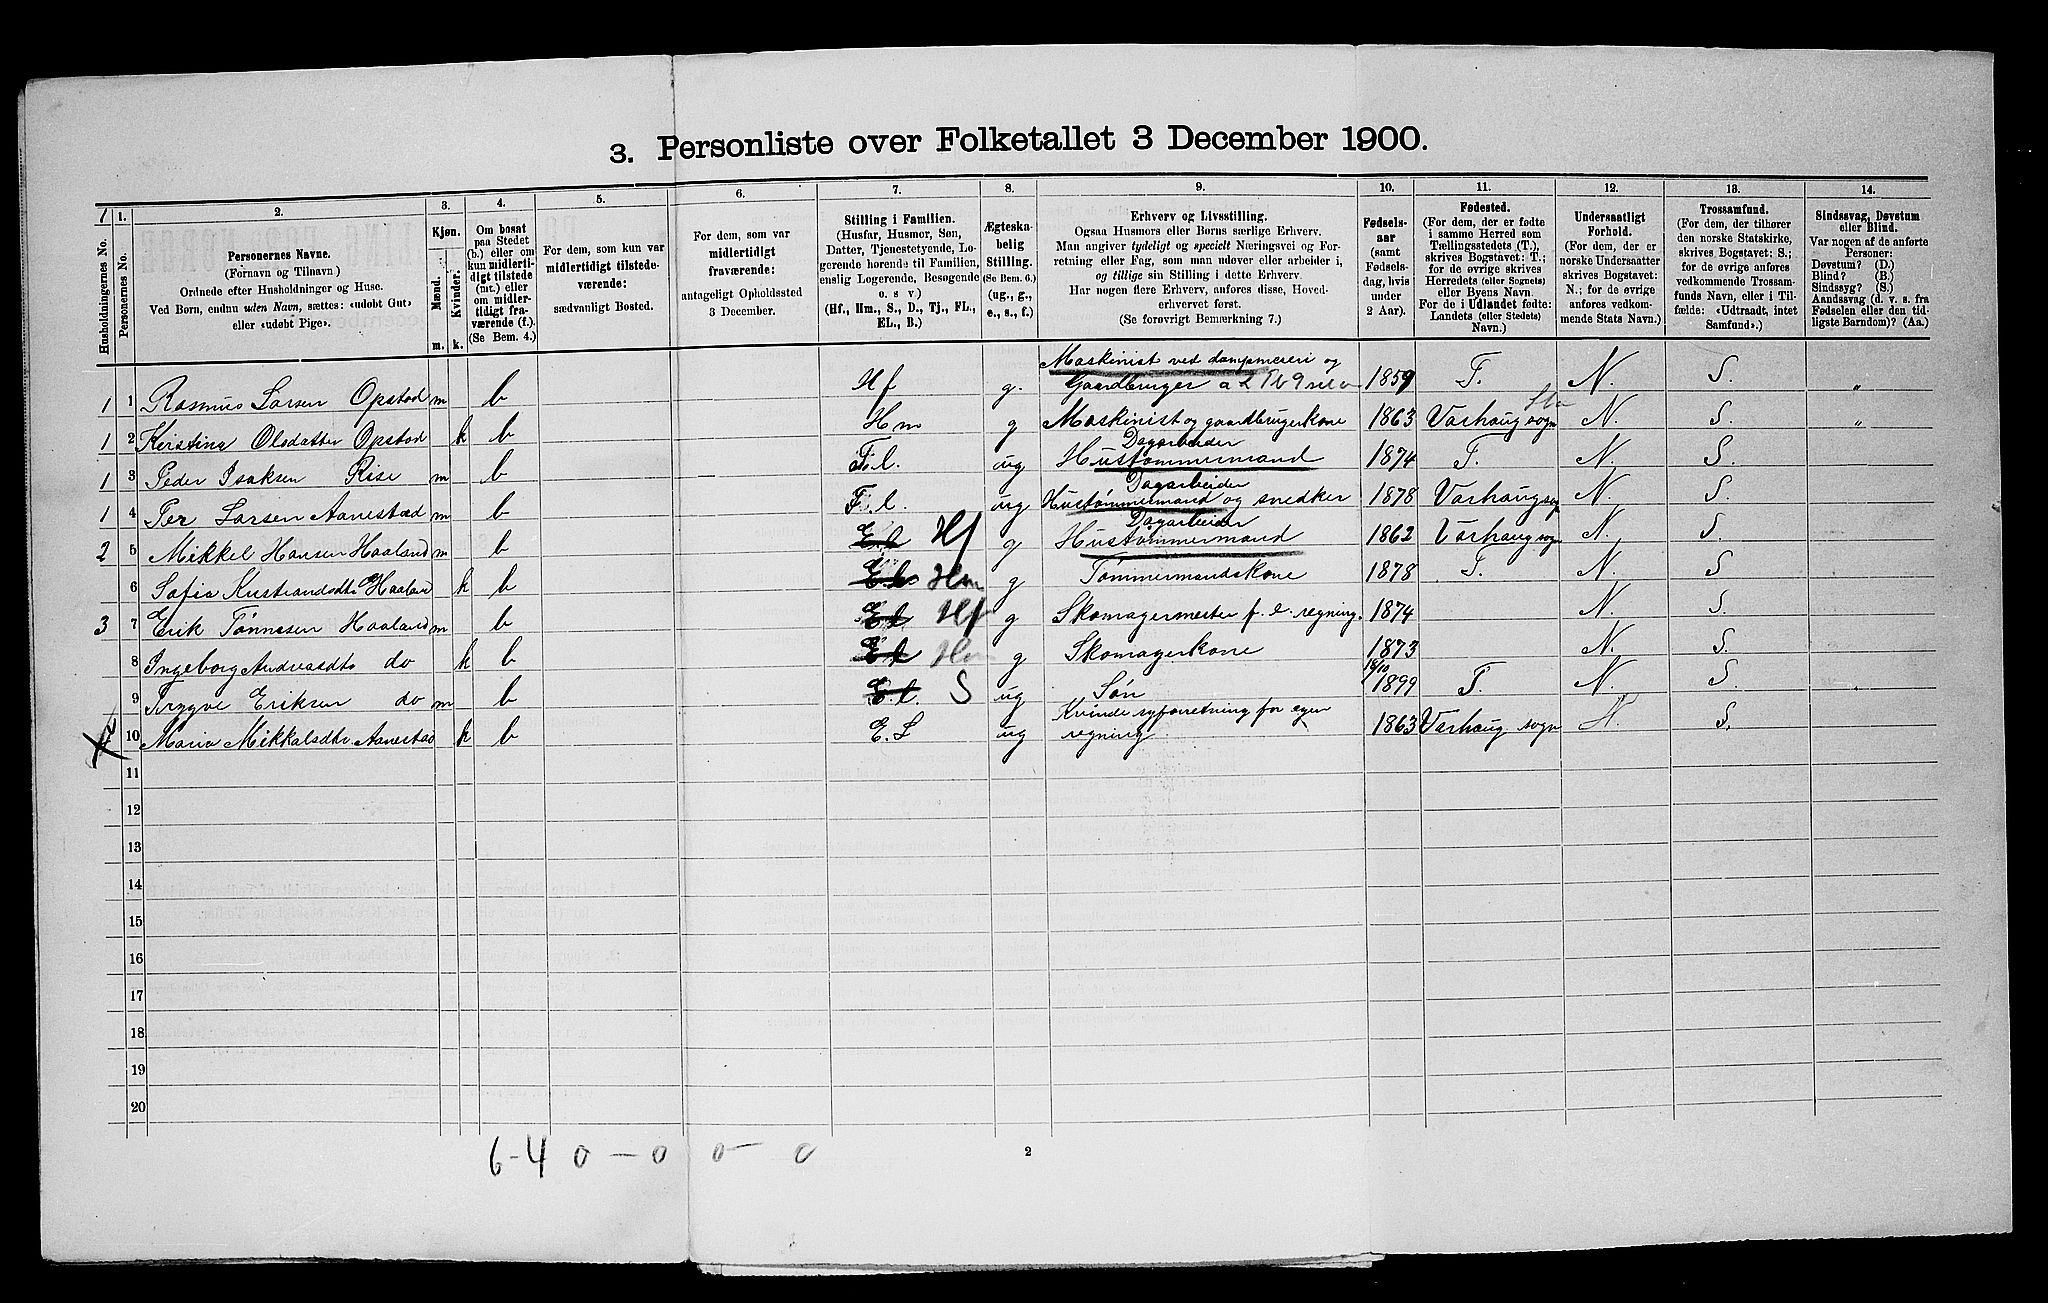 3. Personliste over Folketallet 3 December 1900.
1 1. 2. 3. 4. 5. 6. 7. 8. 9. 10. 11. 12. 13. 14.
Husholdningernes No.
Personernes No.
Personernes Navne.
(Fornavn og Tilnavn)
Ordnede efter Husholdninger og Huse.
Ved Børn, endnu uden Navn, sættes: «udøbt Gut»
eller «udøbt Pige».
Kjøn.
Mænd.
Kvinder.
m. k.
Om bosat
paa Stedet
(b.) eller om
kun midlerti-
digt tilstede
(mt.) eller
om midler-
tidigt fra-
værende (f.).
(Se Bem. 4.)
For dem, som kun var
midlertidigt tilstede-
værende:
sædvanligt Bosted.
For dem, som var
midlertidigt
fraværende:
antageligt Opholdssted
3 December.
Stilling i Familien.
(Husfar, Husmor, Søn,
Datter, Tjenestetyende, Lo-
gerende hørende til Familien,
enslig Logerende, Besøgende
o. s v)
(Hf., Hm., S., D., Tj., FL.,
EL., B.)
Ægteska-
belig
Stilling.
(Se Bem. 6.)
(ug., g.,
e., s., f.)
Erhverv og Livsstilling.
Ogsaa Husmors eller Børns særlige Erhverv.
Man angiver tydeligt og specielt Næringsvei og For-
retning eller Fag, som man udøver eller arbeider i,
og tillige sin Stilling i dette Erhverv.
Har nogen flere Erhverv, anføres disse, Hoved-
erhvervet først.
(Se forøvrigt Bemærkning 7.)
Fødsels-
aar
(samt
Fødsels-
dag, hvis
under
2 Aar).
Fødested.
(For dem, der er fødte
i samme Herred som
Tællingsstedets (T.),
skrives Bogstavet: T.;
for de øvrige skrives
Herredets (eller Sognets)
eller Byens Navn.
For de i Udlandet fødte:
Landets (eller Stedets)
Navn.)
Undersaatligt
Forhold.
(For dem, der er
norske Undersaatter
skrives Bogstavet:
N.; for de øvrige
anføres vedkom-
mende Stats Navn.)
Trossamfund.
(For dem, der tilhører
den norske Statskirke,
skrives Bogstavet: S.;
for de øvrige anføres
vedkommende Trossam-
funds Navn, eller i Til-
fælde: «Udtraadt, intet
Samfund».)
Sindssvag, Døvstum
eller Blind.
Var nogen af de anførte
Personer:
Døvstum? (D.)
Blind? (B.)
Sindssyg? (S.)
Aandssvag (d. v. s. fra
Fødselen eller den tid-
ligste Barndom)? (Aa.)
1 1 Rasmus Larsen Opstad m b Hf g. Maskinist ved dampmeieri og
Gaardbruger 1859 T. N. S. "
1 2 Kirstina Olsdatter Opstad k b Hm g Maskinist og gaardbrugerkone 1863 Varhaug sogn N. S. "
1 3 Peder Isaksen Rise m b F.l. ug Dagarbeider
Hustømmermand 1874 T. N. S.
1 4 Per Larsen Aanestad m b F.l. ug Dagarbeider
Hustømmermand og snedker 1878 Varhaug sogn N. S.
2 5 Mikkel Hansen Haaland m b E.l Hf g Dagarbeider
Hustømmermand 1862 Varhaug sogn N. S.
6 Sofia Haaland k b E.l. Hm g Tømmermandskone 1878 T. N. S
3 7 Erik Tønnesen Haaland m b E.l Hf g Skomagermester f. e. regning. 1874 N. S.
8 Ingeborg Andreasdtr do k b E.l Hm g Skomagerkone 1873 N. S.
9 Trygve Eriksen do m b E.l. S ug Søn 18/10 1899 T. N. S.
10 Maria Mikkalsdtr Aanestad k b E.L ug Kvinde syforretning for egen
regning 1863 Varhaug sogn N. S.
11
12
13
14
15
16
17
18
19
20
6-4 0 - 0 0 - 0
2